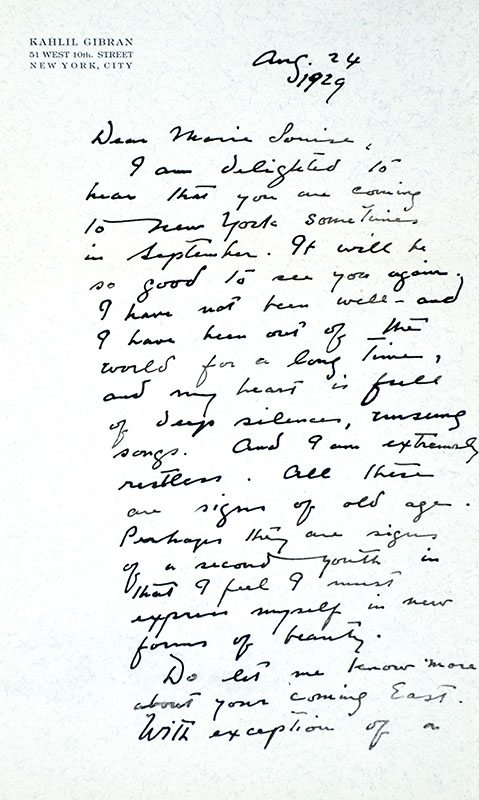 KAHLIL GIBRAN
51 WEST 10th. STREET
NEW YORK, CITY
Aug. 24
1929
Dear Marie Louise,
I am delighted to
hear that you are coming
to New York sometimes
in September. It will be
so good to see you again.
I have not been well – and
I have been out of the
world for a long time,
and my heart is full
of deep silences, unsung
songs. And I am extremely
restless. All these
are signs of old age.
Perhaps they are signs
of a second youth in
that I feel I must
express myself in new
forms of beauty.
Do let me know more
about your coming East.
With exception of a